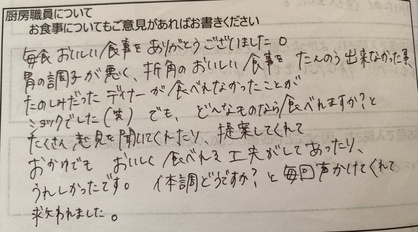 厨房職員について
お食事についてもご意見があればお書きください
毎食おいしい食事をありがとうございました。
胃の調子が悪く、折角のおいしい食事をたんのう出来なかった事、
たのしみだったディナーが食べれなかったことが
ショックでした(笑) でも、どんなものなら食べれますか?と
たくさん意見を聞いてくれたり、提案してくれて
おかゆでも おいしく食べれる工夫がしてあったり、
うれしかったです。 体調どうですか?と毎回声かけてくれて
救われました。